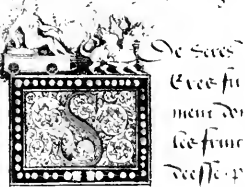 De ceres
Ceres fu
ment don
les fruic
deesse. p